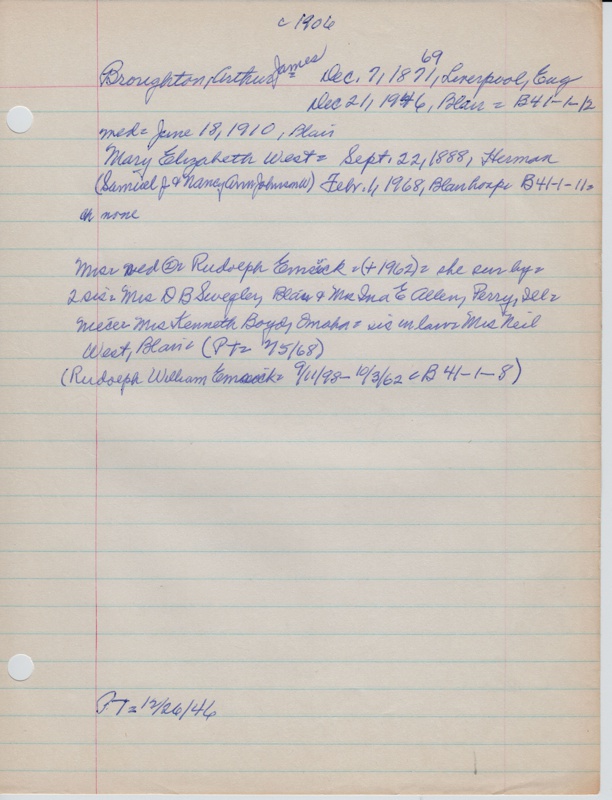 c 1906
Broughton, Arthur James Dec. 7, 1871, 69 Liverpool, Eng
Dec 21, 1946, Blair = B41-1-12
med= June 18, 1910, Blair
Mary Elizabeth West = Sept. 22, 1888, Herman
(Samuel J & Nancy Ann Johnson W) Febr. 1, 1968, Blair hosp= B41-1-11=
ch none
Mrs= wed ② Rudolph = (+ 1962) = she sur by =
2 sis= Mrs D B Swegley, Blair & Mrs Ina E Allen, Perry, Ill=
niece= Mrs Kenneth Boyd, Omaha = sis in law= Mrs Neil
West, Blair = (PT= 2/5/68)
(Rudolph William = 9/11/98 - 10/3/62 = B 41-1-8)
PT= 12/26/46